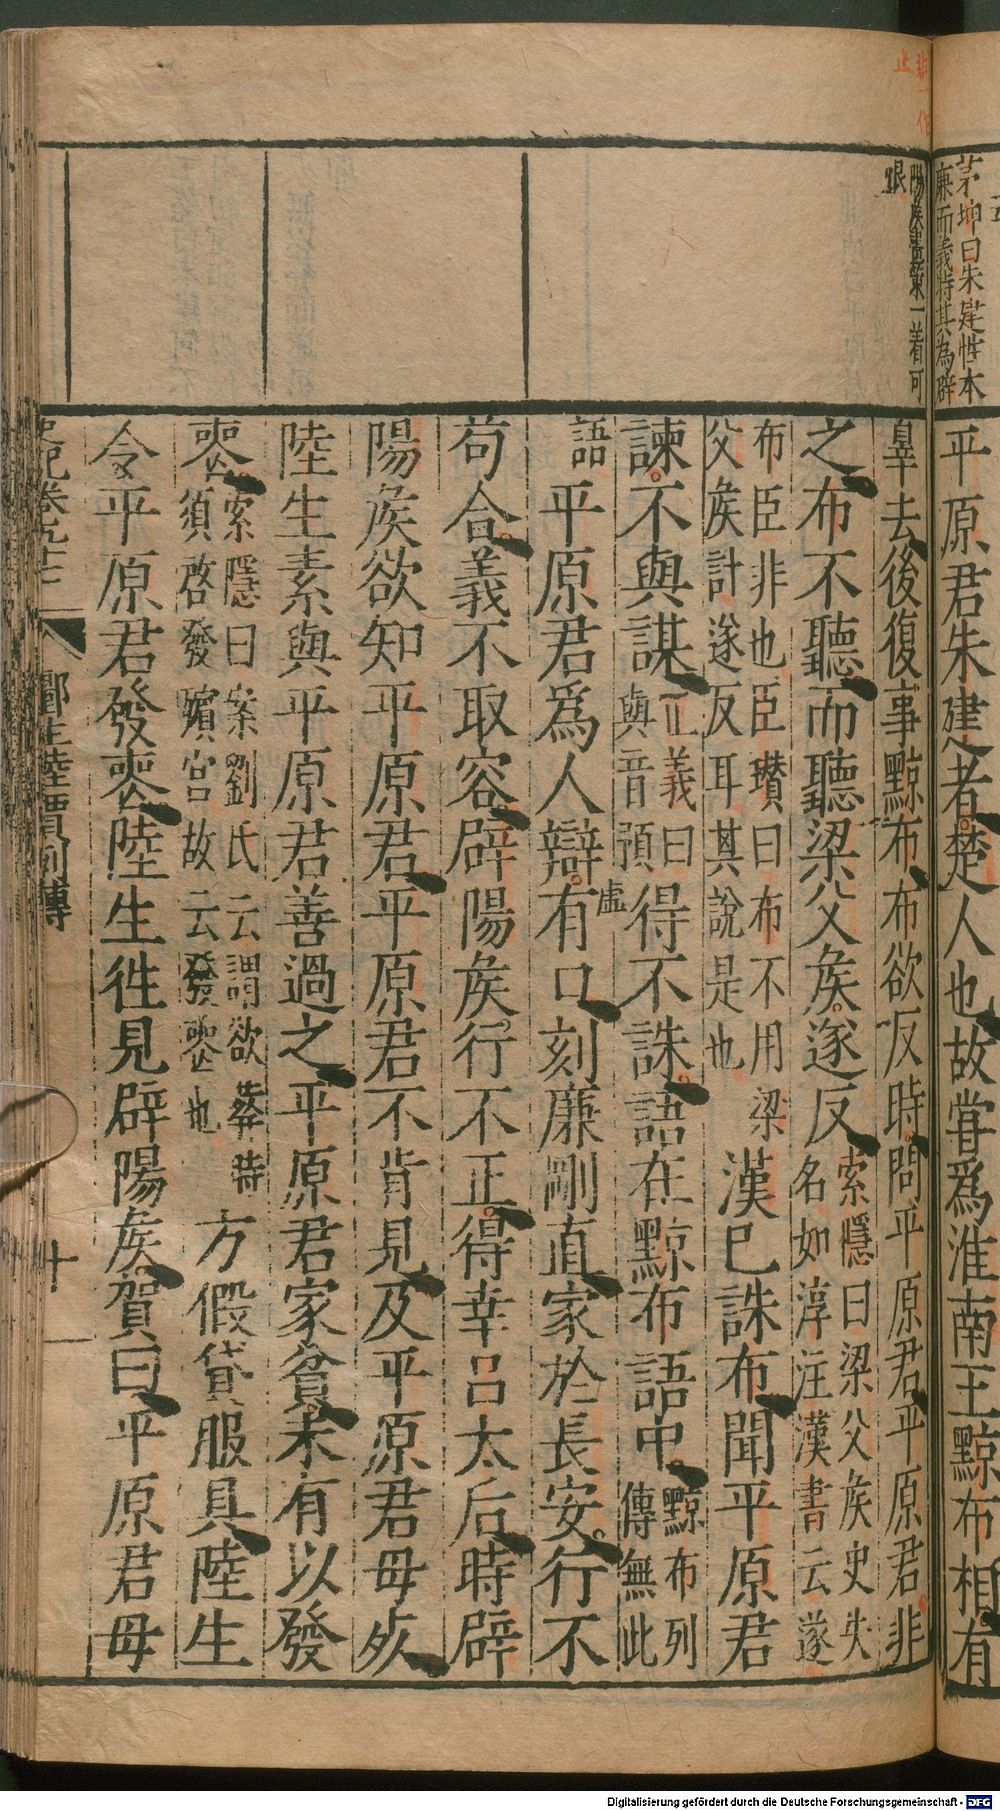 非一作
止
茅坤曰朱建性本
廉而義特其為辟
陽侯畫策一着可
恨
平原君朱建者楚人也故甞爲淮南王黥布相有
辠去後復事黥布布欲反時問平原君平原君非
之布不聽而聽梁父矦遂反
索隱曰梁父矦史失
名如淳注漢書云遂
布臣非也臣瓉曰布不用梁
父矦計遂反耳其說是也
漢巳誅布聞平原君
諫不與謀
正義曰
與音預
得不誅語在黥布語中
黥布列
傳無此
語
平原君爲人辯有口刻廉剛直家於長安行不
虛
苟合義不取容辟陽矦行不正得幸呂太后時辟
陽矦欲知平原君平原君不肯見及平原君母死
陸生素與平原君善過之平原君家貧未有以發
喪
索隱曰案劉氏云謂欲葬時
須啓發殯宮故云發喪也
方假貸服具陸生
令平原君發喪陸生徃見辟陽矦賀曰平原君母
史記卷九十七
酈生陸賈列傳
十一
Digitalisierung gefördert durch die Deutsche Forschungsgemeinschaft - DFG